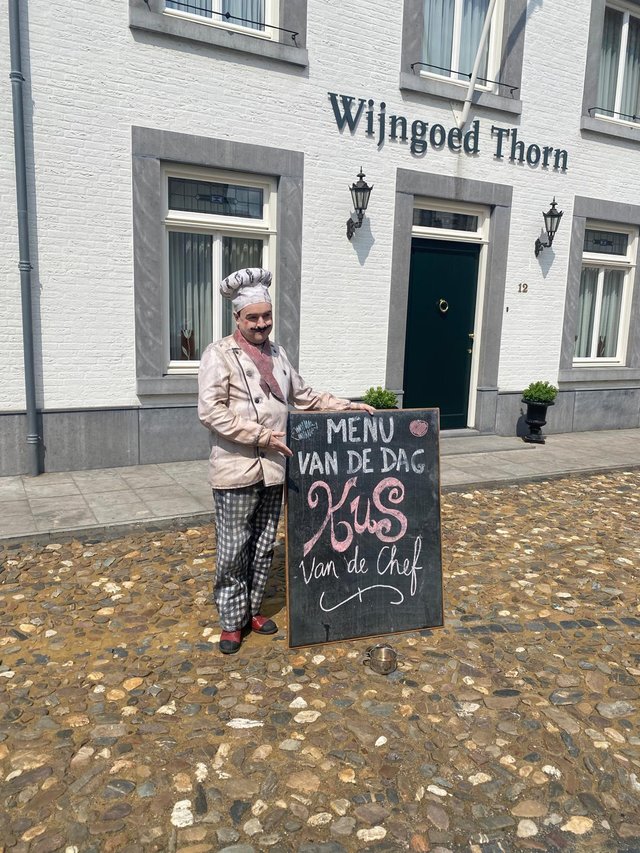 Wijngoed Thorn
12
MENU
VAN DE DAG
KUS
Van de Chef